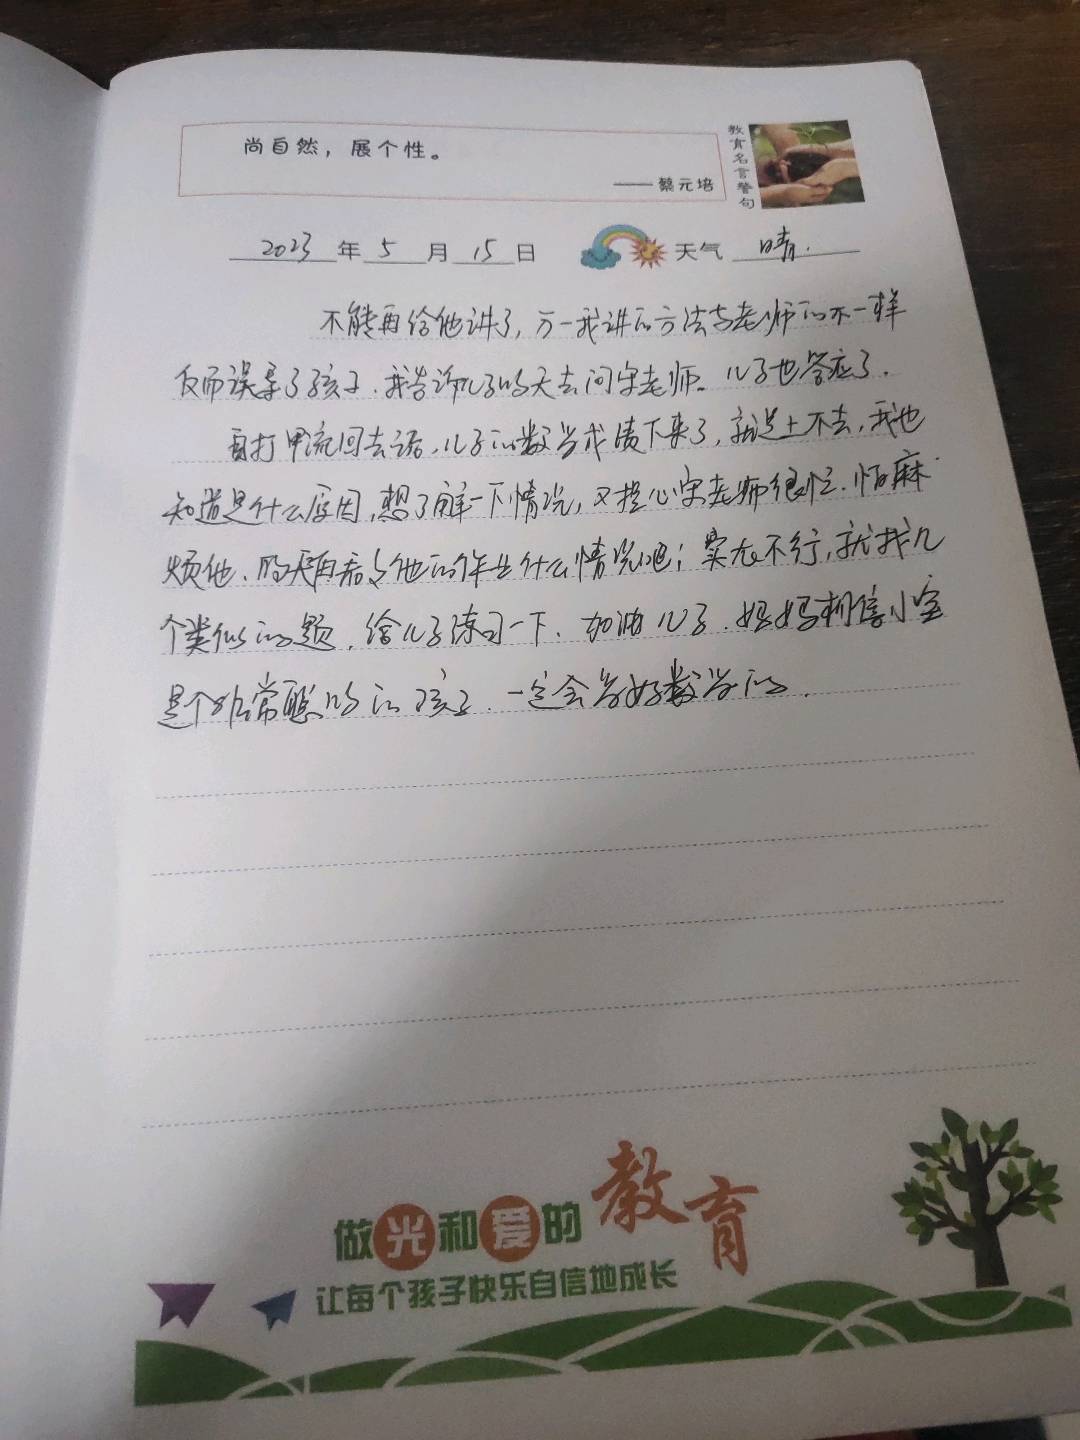 尚自然，展个性。
——蔡元培
教育名言警句
2023年5月15日 天气 晴.
不能再给他讲了，万一我讲的方法与老师的不一样
反而误导了孩子.我告诉儿子明天去问宋老师。儿子也答应了.
自打甲流回去话,儿子的数学成绩下来了，就是上不去,我也
知道是什么原因,想了解一下情况,又担心宋老师很忙.怕麻
烦他、明天再看看他的作业什么情况吧；实在不行,就找几
个类似的题,给儿子练习一下、加油儿子.妈妈相信小宝
是个非常聪明的孩子.一定会学好数学的.
做光和爱的教育
让每个孩子快乐自信地成长